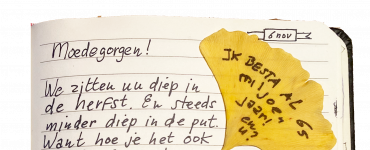 Moedegorgen!
6 nov
We zitten nu diep in
de herfst. En steeds
minder diep in de put.
Want hoe je het ook
IK BESTA AL 65
miljoen
jaar!
en
u?